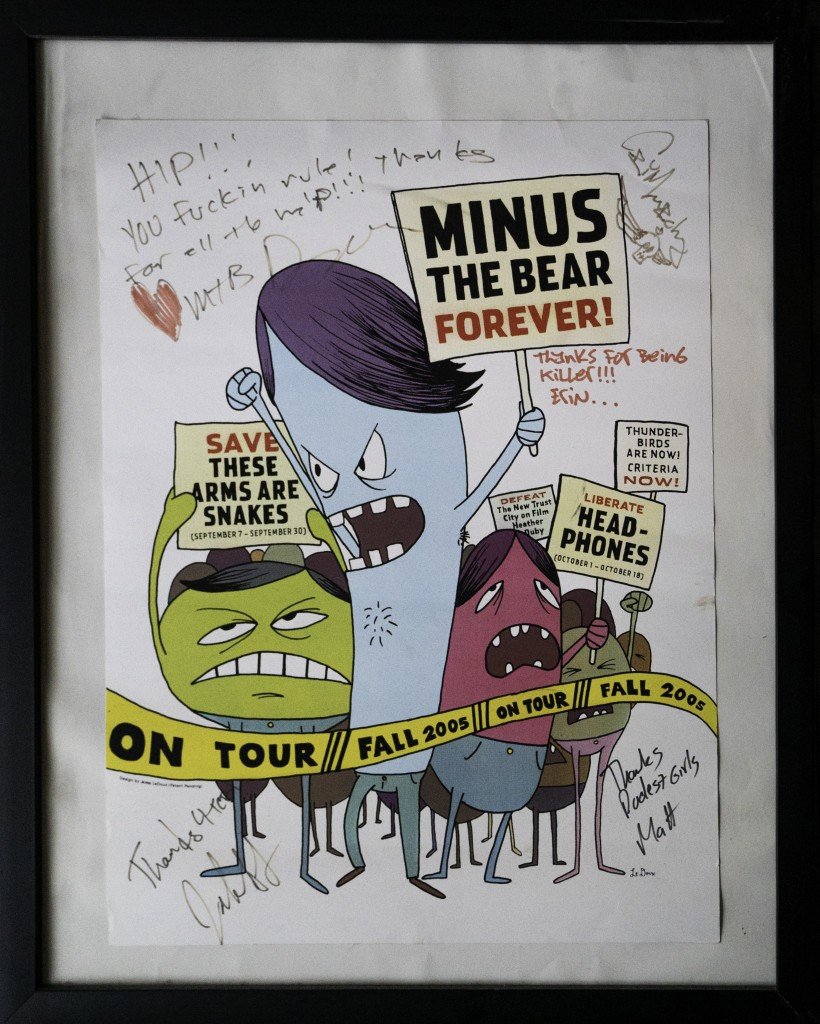 HIP!!!
You Fuckin rule! Thanks
For all the help!!!
MTB
MINUS
THE BEAR
FOREVER!
Thanks For Being
Killer!!!
Erin...
SAVE
THESE
ARMS ARE
SNAKES
(SEPTEMBER 7 – SEPTEMBER 30)
THUNDER-
BIRDS
ARE NOW!
CRITERIA
NOW!
DEFEAT
The New Trust
City on Film
Heather
Duby
LIBERATE
HEAD-
PHONES
(OCTOBER 1 – OCTOBER 18)
ON TOUR /// FALL 2005 /// ON TOUR /// FALL 2005
Design by Jesse LeDoux (Patent Pending)
Thanks
Dudest Girls
Matt
Thanks
LeDoux